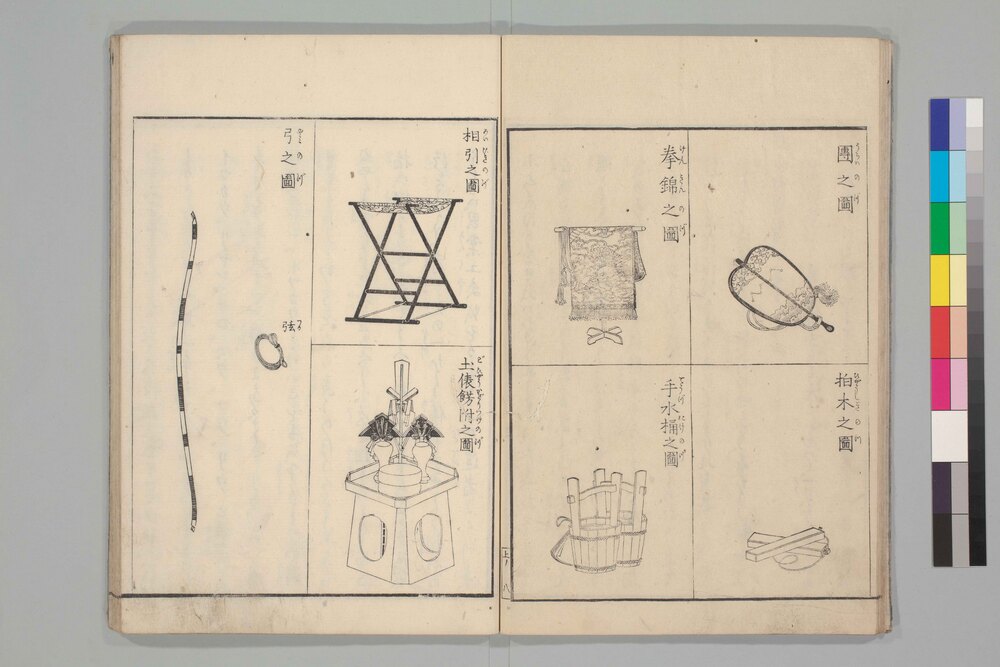 團之圖
拍木之圖
拳錦之圖
手水桶之圖
上ノ 八
相引之圖
土俵餝附之圖
弓之圖
弦